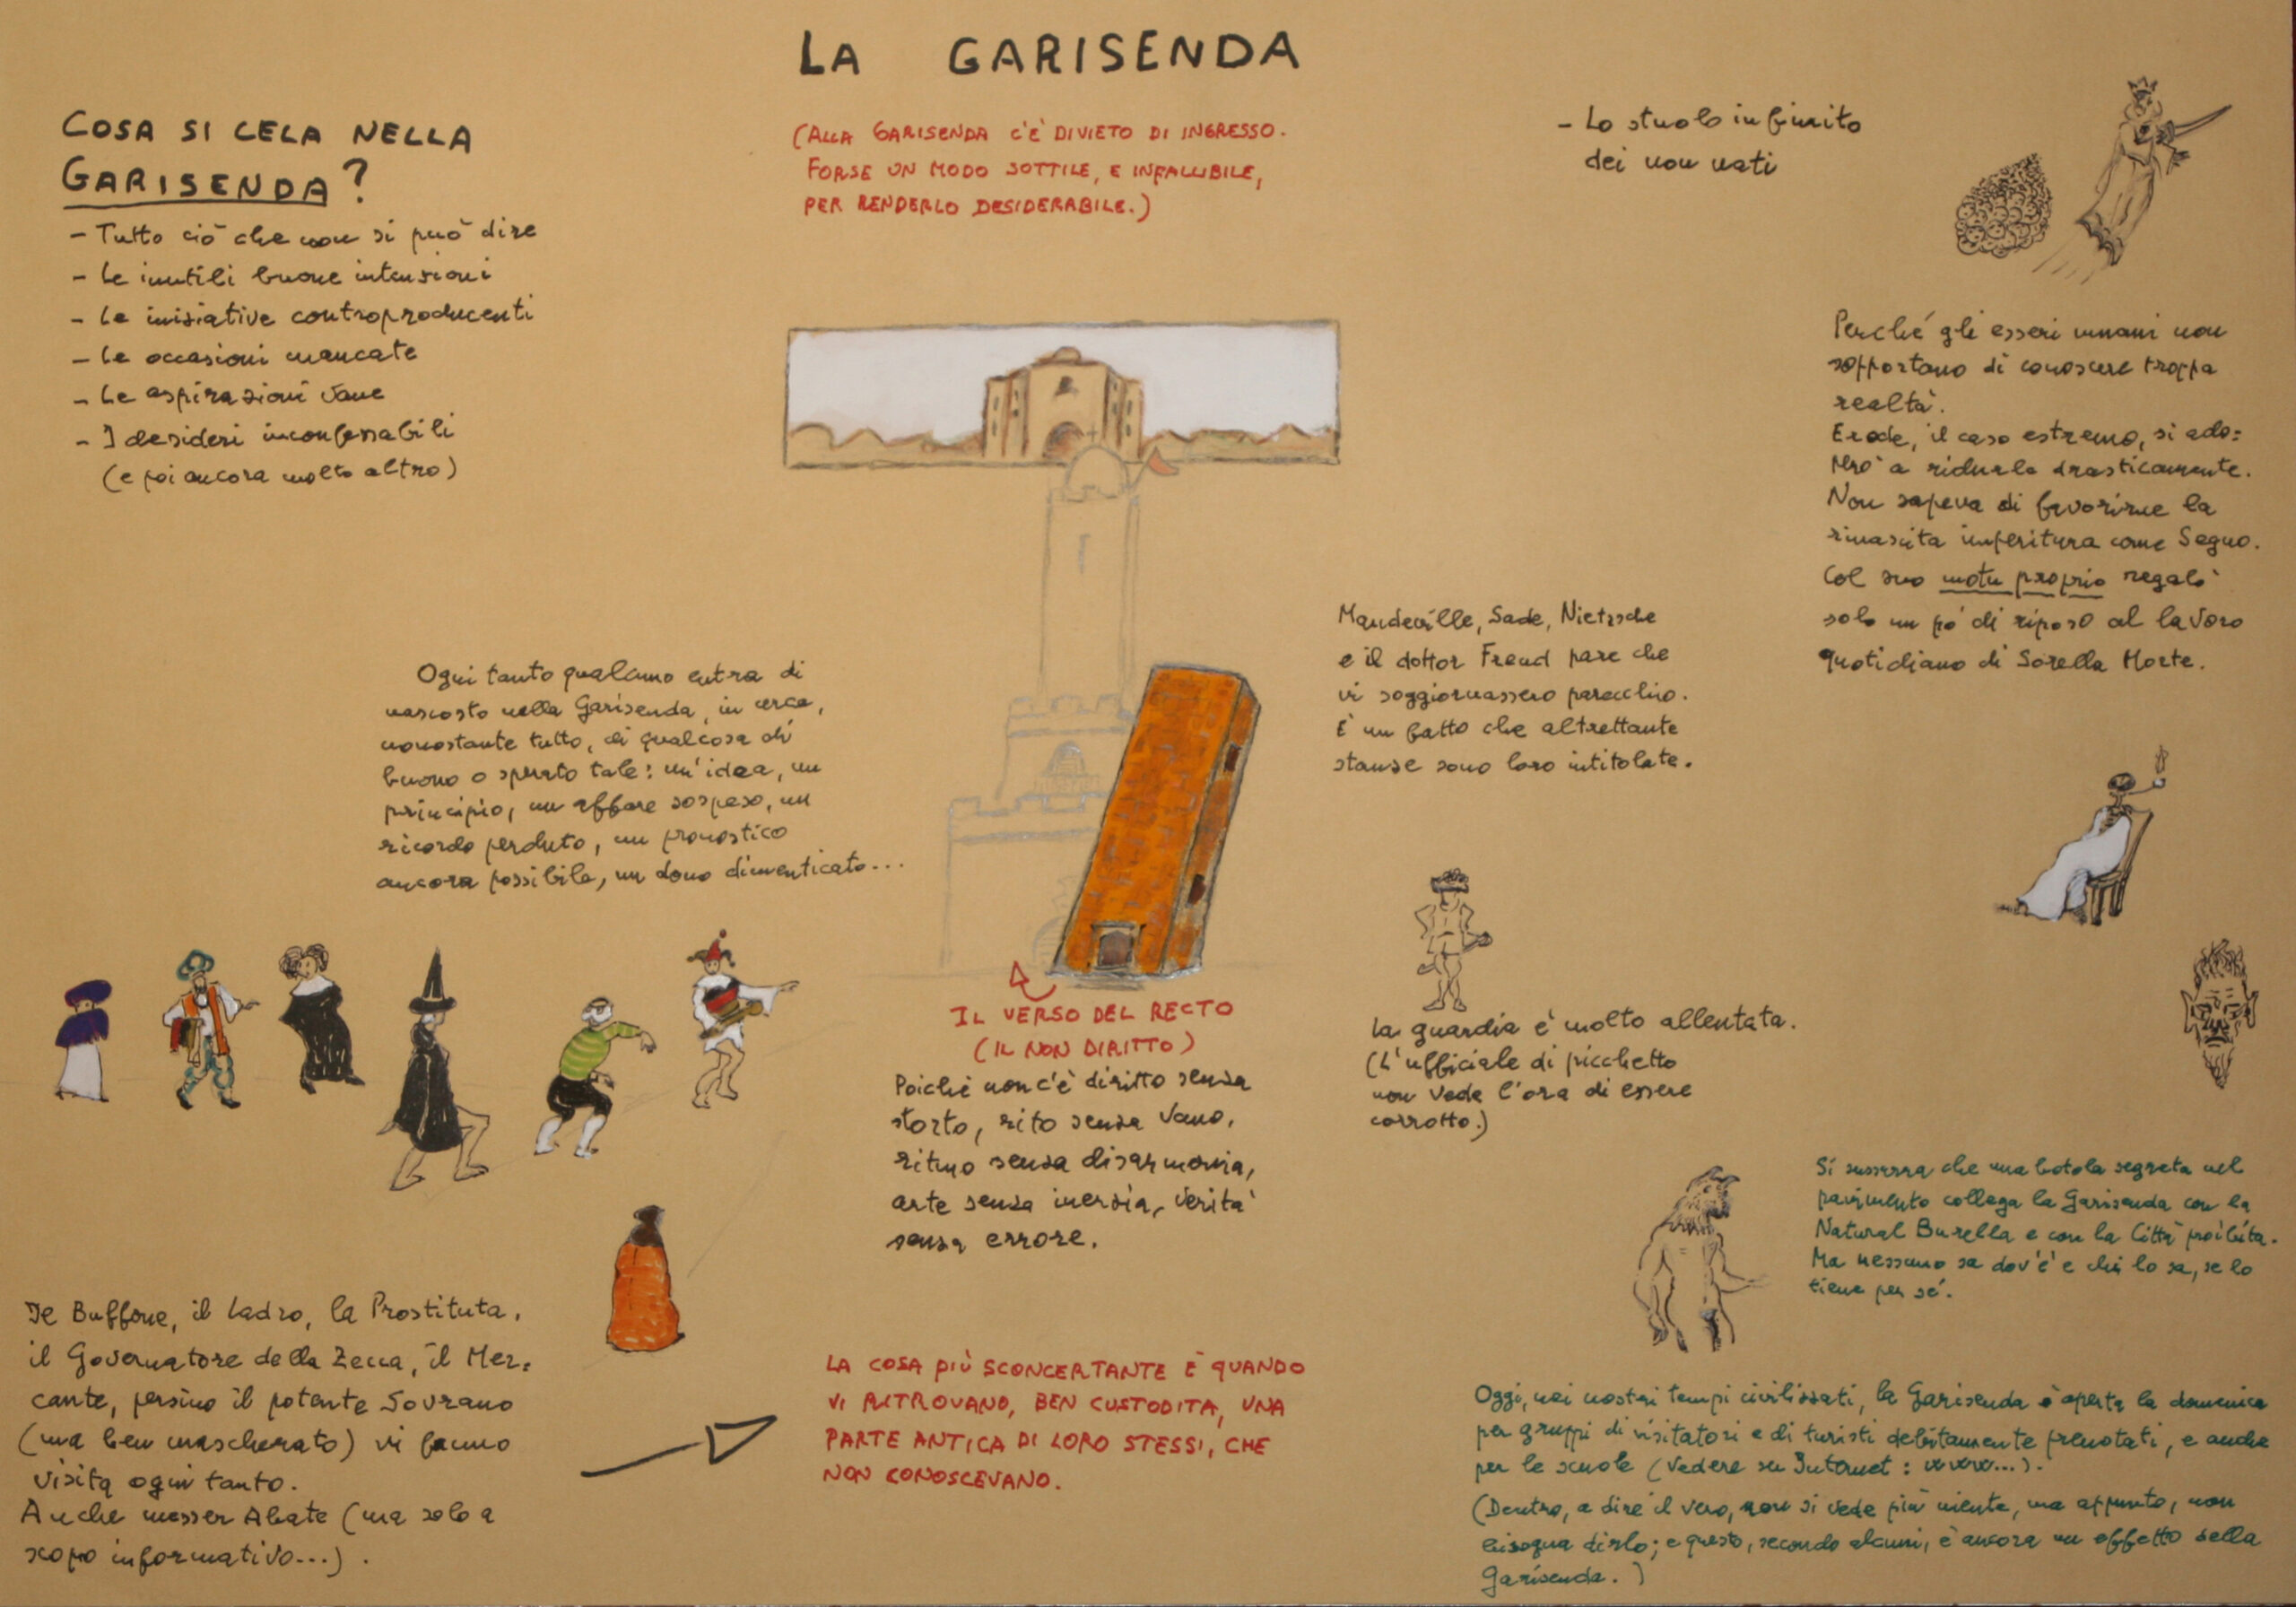 LA GARISENDA
(ALLA GARISENDA C'È DIVIETO DI INGRESSO.
FORSE UN MODO SOTTILE, E INFALLIBILE,
PER RENDERLO DESIDERABILE.)
COSA SI CELA NELLA
GARISENDA?
- Tutto ciò che non si può dire
- Le inutili buone intenzioni
- Le iniziative controproducenti
- Le occasioni mancate
- Le aspirazioni vane
- I desideri inconfessabili
(e poi ancora molto altro)
- Lo stuolo infinito
dei non nati
Perché gli esseri umani non
sopportano di conoscere troppa
realtà.
Erode, il caso estremo, si ado=
però a ridurla drasticamente.
Non sapeva di favorirne la
rinascita imperitura come Segno.
Col suo motu proprio regalò
solo un pò di riposo al lavoro
quotidiano di Sorella Morte.
Mandeville, Sade, Nietzsche
e il dottor Freud pare che
vi soggiornassero parecchio.
È un fatto che altrettante
stanze sono loro intitolate.
Ogni tanto qualcuno entra di
nascosto nella Garisenda, in cerca,
nonostante tutto, di qualcosa di
buono o sperato tale: un'idea, un
principio, un affare sospeso, un
ricordo perduto, un pronostico
ancora possibile, un dono dimenticato...
IL VERSO DEL RECTO
(IL NON DIRITTO)
Poiché non c'è diritto senza
storto, rito senza vano,
ritmo senza disarmonia,
arte senza inerzia, verità
senza errore.
La guardia è molto allentata.
(L'ufficiale di picchetto
non vede l'ora di essere
corrotto.)
Si sussurra che una botola segreta nel
pavimento collega la Garisenda con la
Natural Burella e con la Città proibita.
Ma nessuno sa dov'è e chi lo sa, se lo
tiene per sé.
Il Buffone, il Ladro, la Prostituta,
il Governatore della Zecca, il Mer=
cante, persino il potente Sovrano
(ma ben mascherato) vi fanno
visita ogni tanto.
Anche messer Abate (ma solo a
scopo informativo...).
LA COSA PIÙ SCONCERTANTE È QUANDO
VI RITROVANO, BEN CUSTODITA, UNA
PARTE ANTICA DI LORO STESSI, CHE
NON CONOSCEVANO.
Oggi, nei nostri tempi civilizzati, la Garisenda è aperta la domenica
per gruppi di visitatori e di turisti debitamente prenotati, e anche
per le scuole (Vedere su Internet: www...).
(Dentro, a dire il vero, non si vede più niente, ma appunto, non
bisogna dirlo; e questo, secondo alcuni, è ancora un effetto della
Garisenda.)